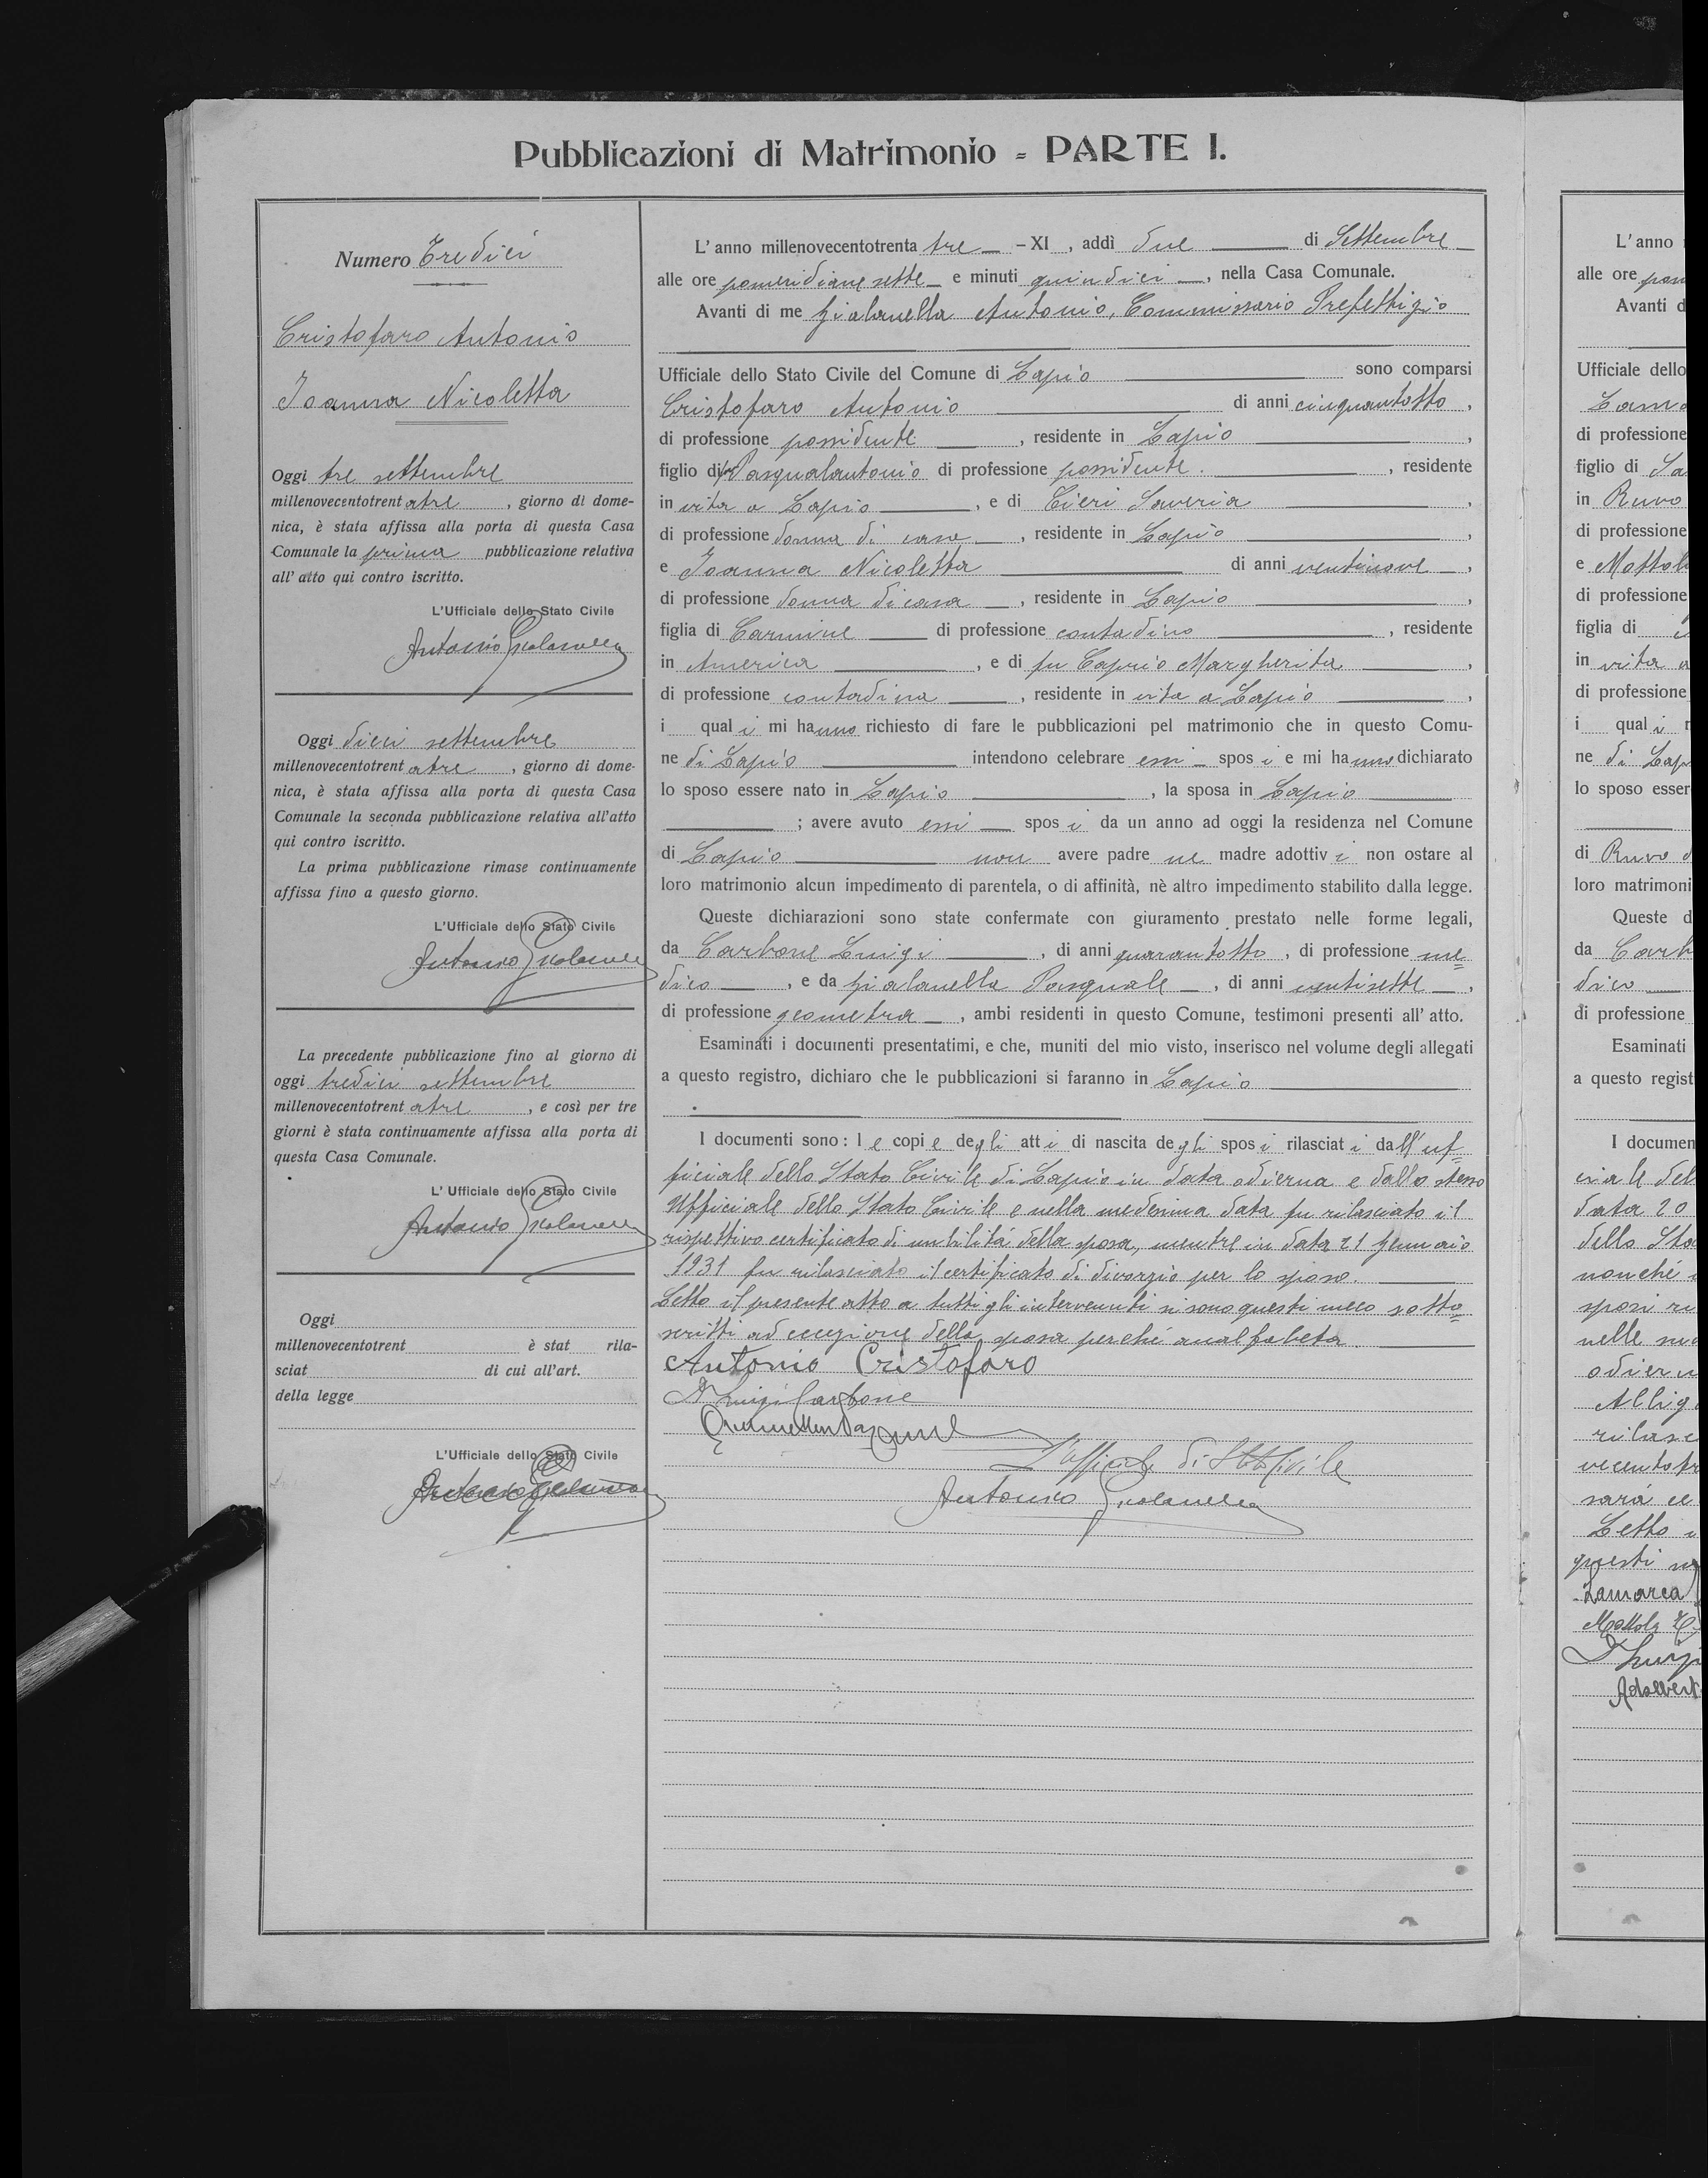 Pubblicazioni di Matrimonio - PARTE I.
Numero Tredici
Cristofaro Antonio
Ioanna Nicoletta
Oggi tre settembre
millenovecentotrent atre, giorno di dome-
nica, è stata affissa alla porta di questa Casa
Comunale la prima pubblicazione relativa
all'atto qui contro iscritto.
L'Ufficiale dello Stato Civile
Antonio Gialanella
Oggi dieci settembre
millenovecentotrent atre, giorno di dome-
nica, è stata affissa alla porta di questa Casa
Comunale la seconda pubblicazione relativa all'atto
qui contro iscritto.
La prima pubblicazione rimase continuamente
affissa fino a questo giorno.
L'Ufficiale dello Stato Civile
Antonio Gialanella
La precedente pubblicazione fino al giorno di
oggi tredici settembre
millenovecentotrent atre, e così per tre
giorni è stata continuamente affissa alla porta di
questa Casa Comunale.
L'Ufficiale dello Stato Civile
Antonio Gialanella
Oggi
millenovecentotrent è stat rila-
sciat di cui all'art.
della legge
L'Ufficiale dello Stato Civile
Antonio Gialanella
L'anno millenovecentotrenta tre - XI, addì due di Settembre
alle ore pomeridiane sette e minuti quindici, nella Casa Comunale.
Avanti di me Gialanella Antonio, Commissario Prefettizio
Ufficiale dello Stato Civile del Comune di Lapio sono comparsi
Cristofaro Antonio di anni cinquantotto,
di professione possidente, residente in Lapio,
figlio di fu Pasqualantonio di professione possidente., residente
in vita a Lapio, e di Cieri Saveria,
di professione donna di casa, residente in Lapio,
e Ioanna Nicoletta di anni ventinove,
di professione donna di casa, residente in Lapio,
figlia di Carmine di professione contadino, residente
in America, e di fu Caprio Margherita,
di professione contadina, residente in vita a Lapio,
i qual i mi ha nno richiesto di fare le pubblicazioni pel matrimonio che in questo Comu-
ne di Lapio intendono celebrare essi spos i e mi ha nno dichiarato
lo sposo essere nato in Lapio, la sposa in Lapio
; avere avuto essi spos i da un anno ad oggi la residenza nel Comune
di Lapio non avere padre ne madre adottiv i non ostare al
loro matrimonio alcun impedimento di parentela, o di affinità, nè altro impedimento stabilito dalla legge.
Queste dichiarazioni sono state confermate con giuramento prestato nelle forme legali,
da Carbone Luigi, di anni quarantotto, di professione me=
dico, e da Gialanella Pasquale, di anni ventisette,
di professione geometra, ambi residenti in questo Comune, testimoni presenti all'atto.
Esaminati i documenti presentatimi, e che, muniti del mio visto, inserisco nel volume degli allegati
a questo registro, dichiaro che le pubblicazioni si faranno in Lapio
I documenti sono: l e copi e de gli att i di nascita de gli spos i rilasciat i da ll'uf=
ficiale dello Stato Civile di Lapio in data odierna e dallo stesso
Ufficiale dello Stato Civile e nella medesima data fu rilasciato il
rispettivo certificato di nubilità della sposa, mentre in data 21 gennaio
1931 fu rilasciato il certificato di divorzio per lo sposo.
Letto il presente atto a tutti gli intervenuti si sono questi meco sotto=
scritti ad eccezione della sposa perché analfabeta.
Antonio Cristofaro
Dr Luigi Carbone
L'Ufficiale di Stato Civile
Antonio Gialanella
L'anno
alle ore pom
Avanti d
Ufficiale dello
di professione
figlio di
in Ruvo
di professione
e Mottol
di professione
figlia di
in vita a
di professione
i qual i
ne di Lap
lo sposo esser
di Ruvo d
loro matrimoni
Queste d
da Carb
dico
di professione
Esaminati
a questo regist
I documen
ciale del
data 20
dello Sta
nonché
sposi ri
nelle
odiern
Allig
rilasc
vecentotr
sarà
Letto
questi
Lamarca